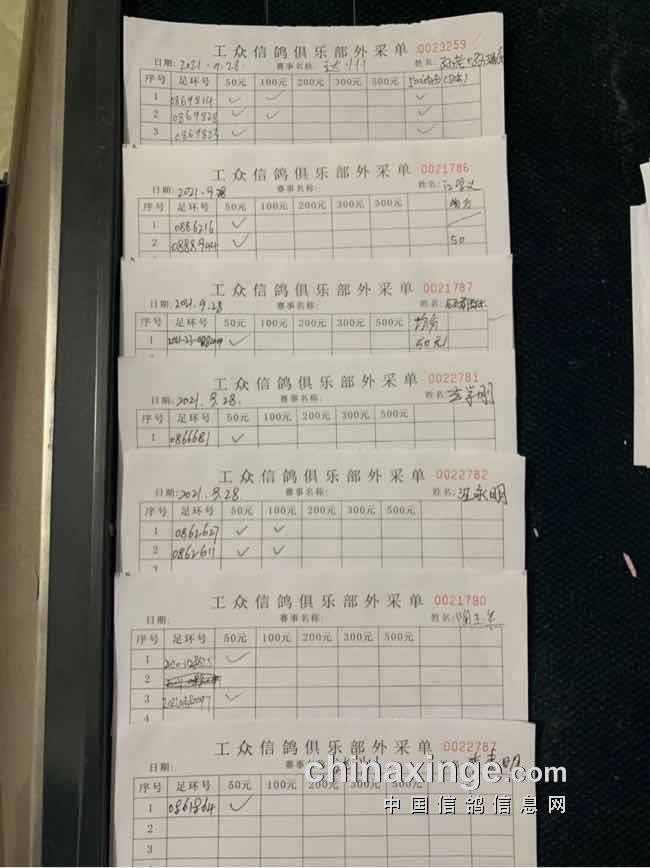 工众信鸽俱乐部外采单 0023259
日期: 2021.9.28 赛事名称: 达川 姓名:
序号 足环号 50元 100元 200元 300元 500元
1 0869814 ✓ ✓ ✓
2 0869828 ✓ ✓ ✓
3 0869823 ✓ ✓
工众信鸽俱乐部外采单 0021786
日期: 2021.9.28 赛事名称: 姓名:
序号 足环号 50元 100元 200元 300元 500元
1 0886216 ✓
2 0888944 ✓ 50
工众信鸽俱乐部外采单 0021787
日期: 2021.9.28 赛事名称: 姓名:
序号 足环号 50元 100元 200元 300元 500元
1 ✓ 50元
工众信鸽俱乐部外采单 0022781
日期: 2021.9.28. 赛事名称: 姓名:
序号 足环号 50元 100元 200元 300元 500元
1 0866681 ✓
工众信鸽俱乐部外采单 0022782
日期: 2021.9.28 赛事名称: 姓名:
序号 足环号 50元 100元 200元 300元 500元
1 0862627 ✓ ✓
2 0862611 ✓ ✓
3
工众信鸽俱乐部外采单 0021790
日期: 赛事名称: 姓名:
序号 足环号 50元 100元 200元 300元 500元
1 ✓
2
3 ✓
4
工众信鸽俱乐部外采单 0022787
日期: 赛事
序号 足环号 50元 100元 200元 300元 500元
1 0861864 ✓
2
3
chinaxinge.com
中国信鸽信息网